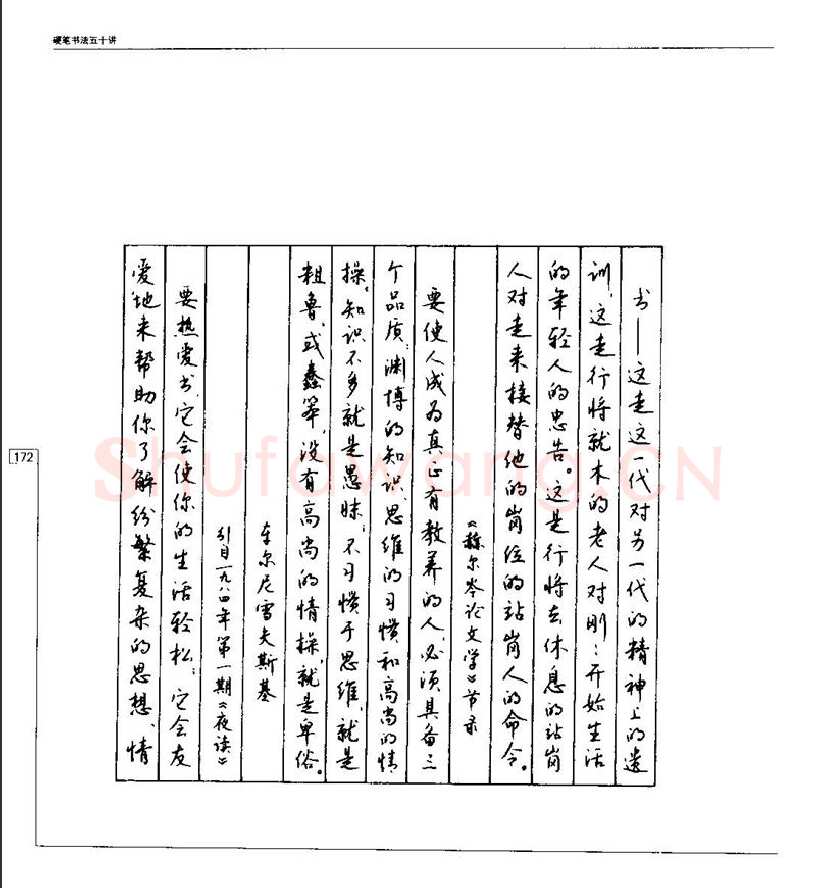 硬笔书法五十讲
书——这是这一代对另一代的精神上的遗
训，这是行将就木的老人对刚刚开始生活
的年轻人的忠告。这是行将去休息的站岗
人对走来接替他的岗位的站岗人的命令。
《赫尔岑论文学》节录
要使人成为真正有教养的人，必须具备三
个品质：渊博的知识、思维的习惯和高尚的情
操。知识不多就是愚昧；不习惯于思维，就是
粗鲁或蠢笨；没有高尚的情操，就是卑俗。
车尔尼雪夫斯基
引自一九八四年第一期《夜读》
要热爱书，它会使你的生活轻松；它会友
爱地来帮助你了解纷繁复杂的思想、情
172
Shufawang.CN